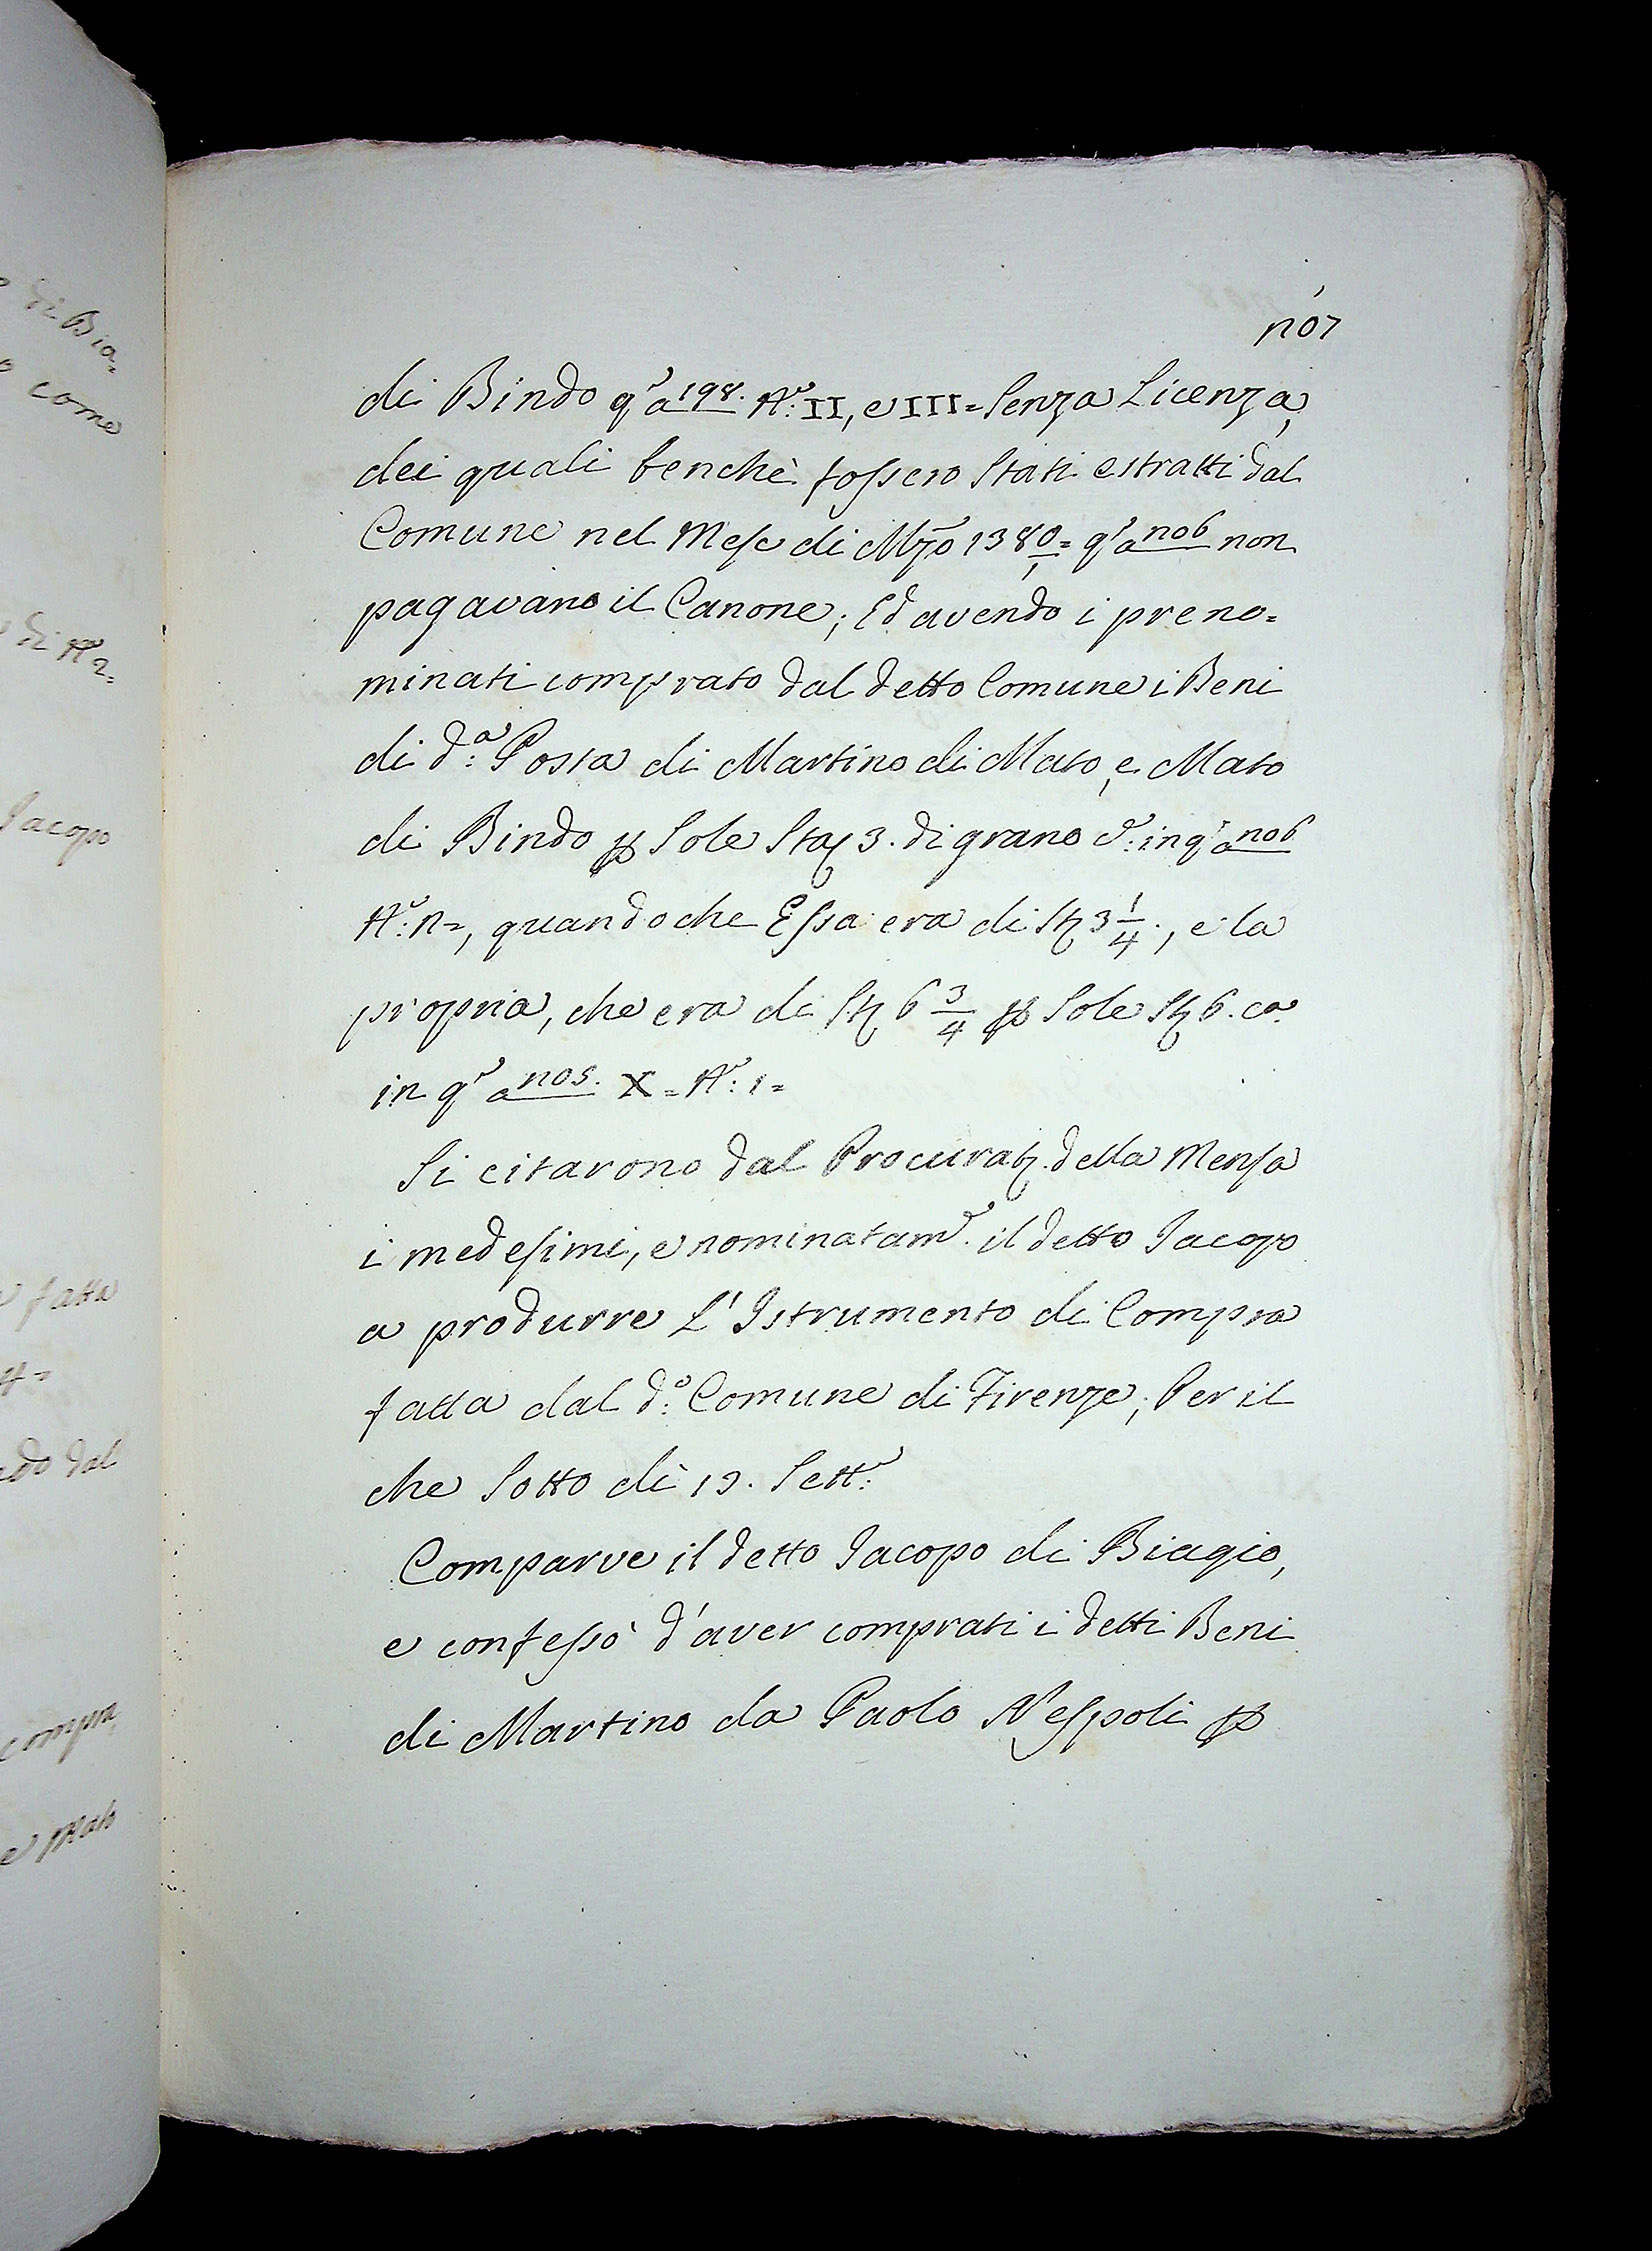 di Bia-
come
di N.° 2=
Jacopo
fatta
do dal
compra
e Mato
207
di Bindo q.ͬ a 198. N.°: II, e III= Senza Licenza,
dei quali benchè fossero Stati estratti dal
Comune nel Mese di Mzo 1380/1= q.ͬ a 206 non
pagavano il Canone; Ed avendo i preno=
minati comprato dal detto Comune i Beni
di d:ᵃ Posta di Martino di Mato, e Mato
di Bindo ꝑ Sole Sta 3. di grano in q.ͬ a 206
N.°: 2=, quando che Essa era di St 3 1/4., e la
propria, che era di St 6 3/4 ꝑ Sole St 6. ca
in q.ͬ a 205. X= N.°: 1=
Si citarono dal Procurat. della Mensa
i medesimi, e nominatam.ͤ il detto Jacopo
a produrre L' Istrumento di Compra
fatta dal d:° Comune di Firenze; Per il
che Sotto dì 19. Sett:ͤ
Comparve il detto Jacopo di Biagio,
e confessò d'aver comprati i detti Beni
di Martino da Paolo Nespoli ꝑ